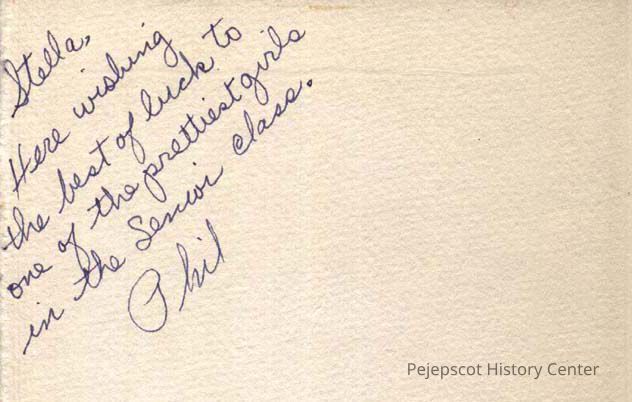 Stella,
Here wishing
the best of luck to
one of the prettiest girls
in the Senior class.
Phil
Pejepscot History Center